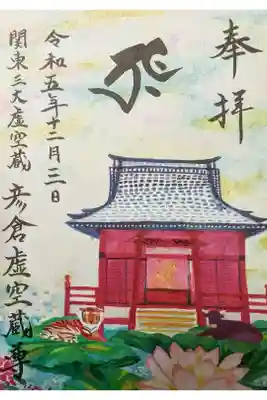 奉拝
令和五年十二月三日
関東三大虚空蔵
彦倉虚空蔵尊